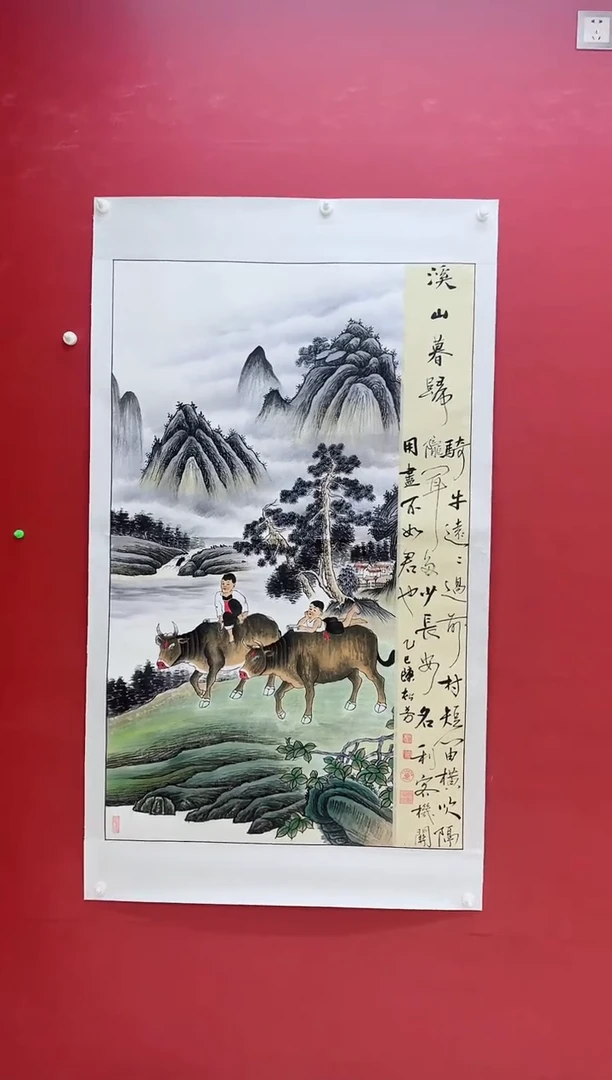 溪山暮歸
騎牛遠〻過前村短笛橫吹隔
隴聞多少長安名利客機關
用盡不如君也
乙巳陳松芳